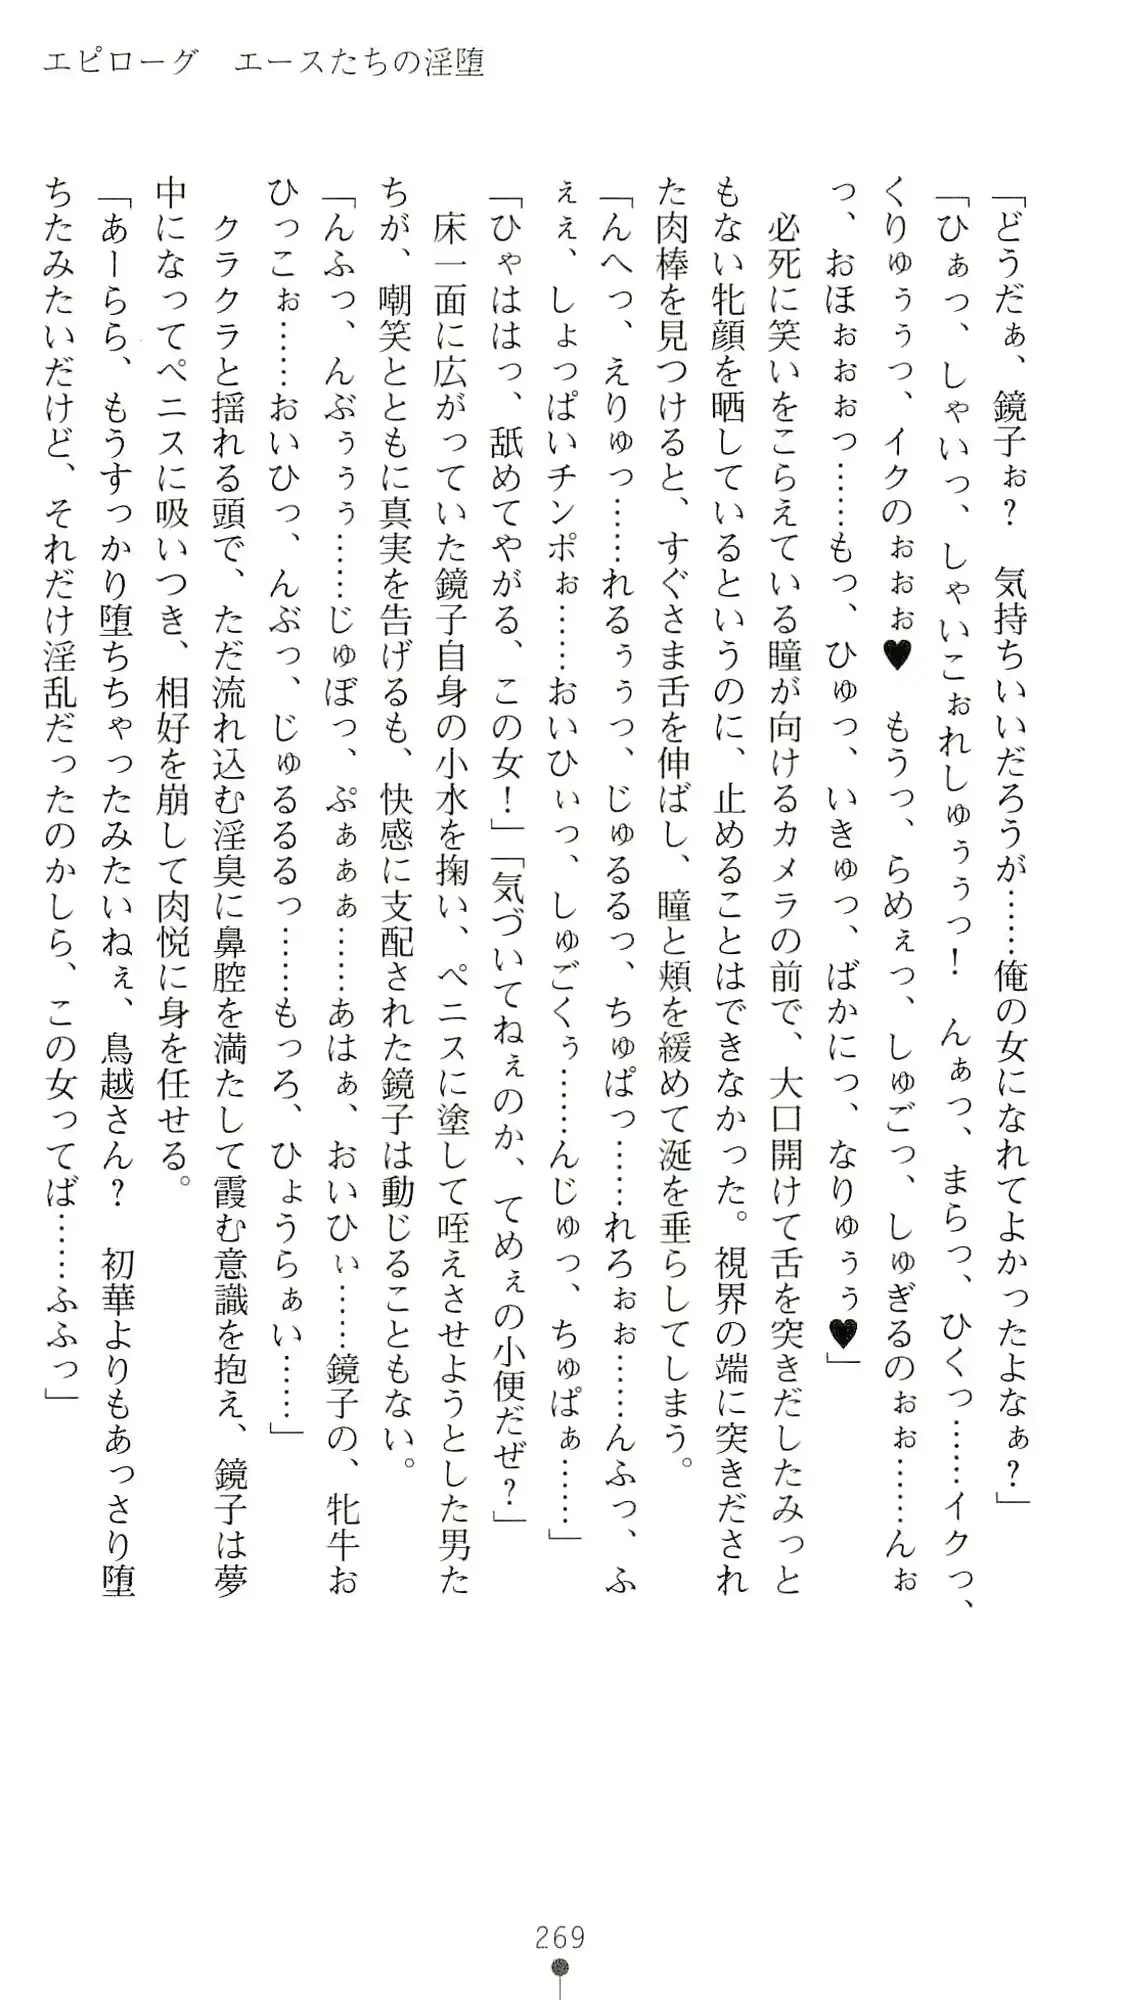 エピローグ　エースたちの淫堕
「どうだぁ、鏡子ぉ？　気持ちいいだろうが……俺の女になれてよかったよなぁ？」
「ひぁっ、しゃいっ、しゃいこぉれしゅぅぅっ！　んぁっ、まらっ、ひくっ……イクっ、
くりゅぅぅっ、イクのぉぉぉ♥　もうっ、らめぇっ、しゅごっ、しゅぎるのぉぉ……んぉ
っ、おほぉぉぉっ……もっ、ひゅっ、いきゅっ、ばかにっ、なりゅぅぅ♥」
　必死に笑いをこらえている瞳が向けるカメラの前で、大口開けて舌を突きだしたみっと
もない牝顔を晒しているというのに、止めることはできなかった。視界の端に突きだされ
た肉棒を見つけると、すぐさま舌を伸ばし、瞳と頬を緩めて涎を垂らしてしまう。
「んへっ、えりゅっ……れるぅぅっ、じゅるるっ、ちゅぱっ……れろぉぉ……んふっ、ふ
ぇぇ、しょっぱいチンポぉ……おいひぃっ、しゅごくぅ……んじゅっ、ちゅぱぁ……」
「ひゃははっ、舐めてやがる、この女！」「気づいてねぇのか、てめぇの小便だぜ？」
　床一面に広がっていた鏡子自身の小水を掬い、ペニスに塗して咥えさせようとした男た
ちが、嘲笑とともに真実を告げるも、快感に支配された鏡子は動じることもない。
「んふっ、んぶぅぅぅ……じゅぼっ、ぷぁぁぁ……あはぁ、おいひぃ……鏡子の、牝牛お
ひっこぉ……おいひっ、んぶっ、じゅるるるっ……もっろ、ひょうらぁい……」
　クラクラと揺れる頭で、ただ流れ込む淫臭に鼻腔を満たして霞む意識を抱え、鏡子は夢
中になってペニスに吸いつき、相好を崩して肉悦に身を任せる。
「あーらら、もうすっかり堕ちちゃったみたいねぇ、鳥越さん？　初華よりもあっさり堕
ちたみたいだけど、それだけ淫乱だったのかしら、この女ってば……ふふっ」
269